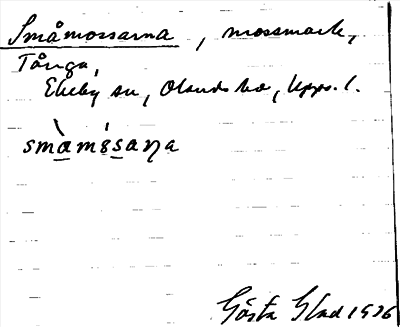 Småmossarna, mossmark,
Tånga,
Ekeby sn, Olands hd, Upps. l.
smàmósaɳa
Gösta Blad 1936